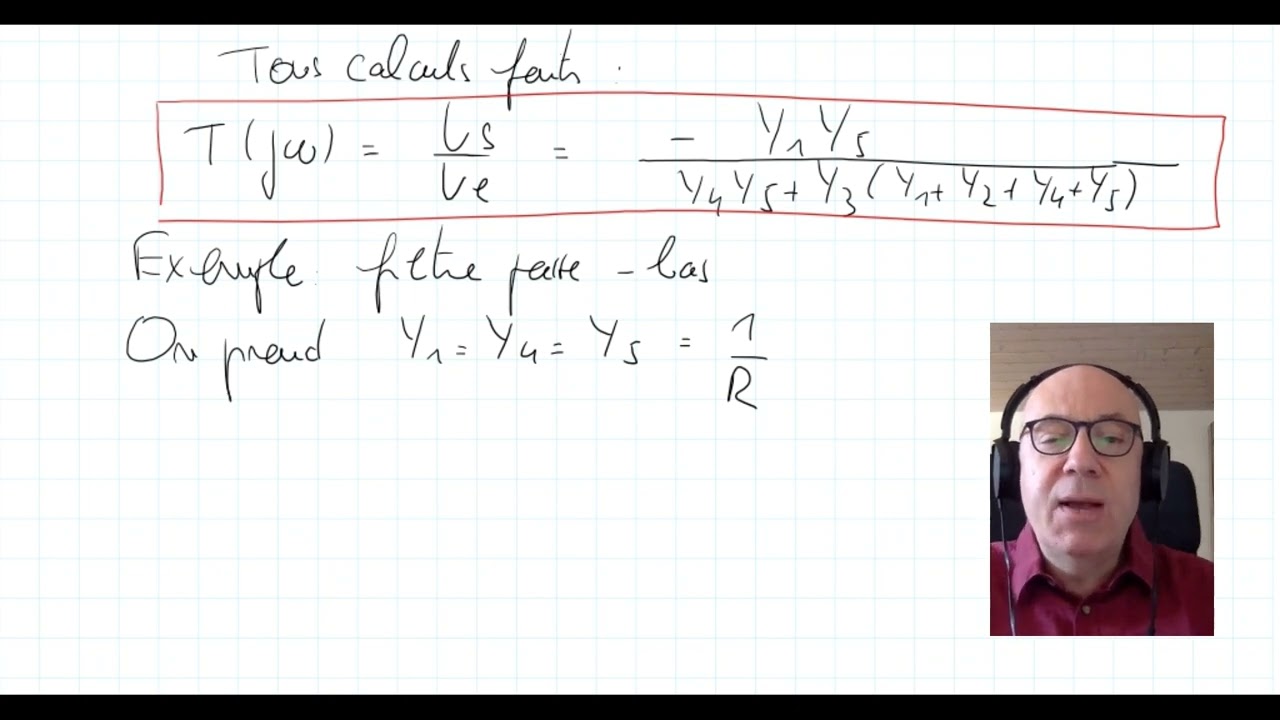 Tous calculs faits :
T(jω) = Vs/Ve = - Y₁Y₅ / Y₄Y₅ + Y₃(Y₁ + Y₂ + Y₄ + Y₅)
Exemple : filtre passe-bas
On prend Y₁ = Y₄ = Y₅ = 1/R